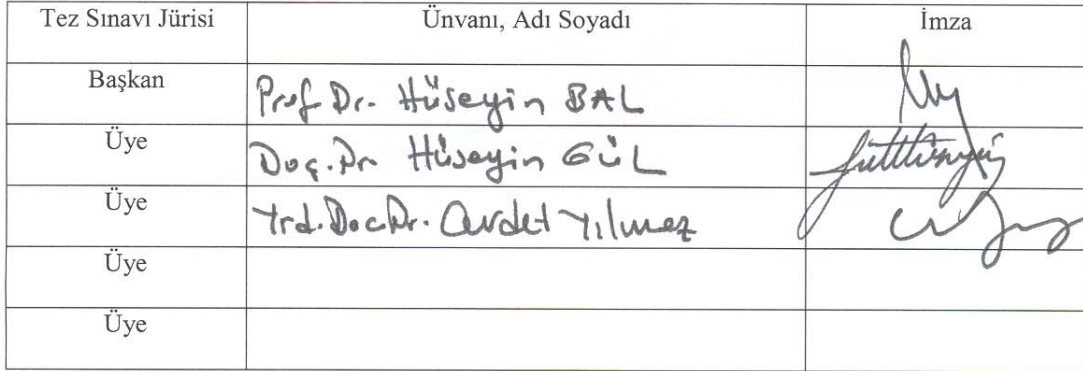 Tez Sınavı Jürisi Ünvanı, Adı Soyadı İmza
Başkan Prof Dr. Hüseyin BAL
Üye Doç. Dr Hüseyin GÜL
Üye Yrd. Doc Dr. Cevdet Yılmaz
Üye
Üye